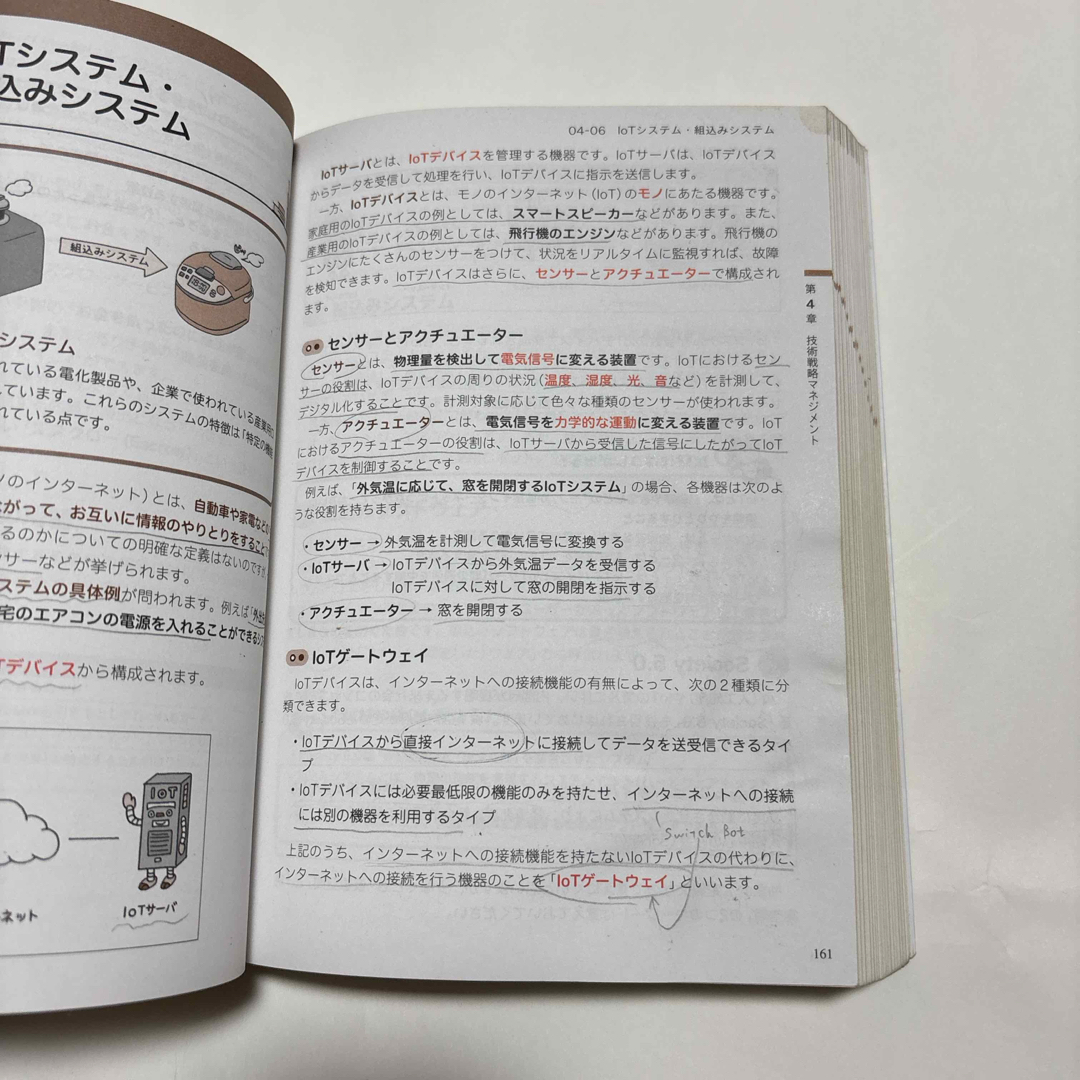 Tシステム・
込みシステム
組込みシステム
システム
れている電化製品や、企業で使われている産業用
しています。これらのシステムの特徴は「特定の機能
れている点です。
ンのインターネット）とは、自動車や家電などの
ながって、お互いに情報のやりとりをすること
るのかについての明確な定義はないのですが
ンサーなどが挙げられます。
ステムの具体例が問われます。例えば「外出
宅のエアコンの電源を入れることができるシス
Tデバイスから構成されます。
IOT
ネット
IoTサーバ
04-06 IoTシステム・組込みシステム
IoTサーバとは、IoTデバイスを管理する機器です。IoTサーバは、IoTデバイス
からデータを受信して処理を行い、IoTデバイスに指示を送信します。
一方、IoTデバイスとは、モノのインターネット（IoT）のモノにあたる機器です。
家庭用のIoTデバイスの例としては、スマートスピーカーなどがあります。また、
産業用のIoTデバイスの例としては、飛行機のエンジンなどがあります。飛行機の
エンジンにたくさんのセンサーをつけて、状況をリアルタイムに監視すれば、故障
を検知できます。IoTデバイスはさらに、センサーとアクチュエーターで構成され
ます。
センサーとアクチュエーター
センサーとは、物理量を検出して電気信号に変える装置です。IoTにおけるセン
サーの役割は、IoTデバイスの周りの状況（温度、湿度、光、音など）を計測して、
デジタル化することです。計測対象に応じて色々な種類のセンサーが使われます。
一方、アクチュエーターとは、電気信号を力学的な運動に変える装置です。IoT
におけるアクチュエーターの役割は、IoTサーバから受信した信号にしたがってIoT
デバイスを制御することです。
例えば、「外気温に応じて、窓を開閉するIoTシステム」の場合、各機器は次のよ
うな役割を持ちます。
・センサー → 外気温を計測して電気信号に変換する
・IoTサーバ → IoTデバイスから外気温データを受信する
IoTデバイスに対して窓の開閉を指示する
・アクチュエーター → 窓を開閉する
IoTゲートウェイ
IoTデバイスは、インターネットへの接続機能の有無によって、次の2種類に分
類できます。
・IoTデバイスから直接インターネットに接続してデータを送受信できるタイ
プ
・IoTデバイスには必要最低限の機能のみを持たせ、インターネットへの接続
には別の機器を利用するタイプ
Switch Bot
上記のうち、インターネットへの接続機能を持たないIoTデバイスの代わりに、
インターネットへの接続を行う機器のことを「IoTゲートウェイ」といいます。
第4章 技術戦略マネジメント
161